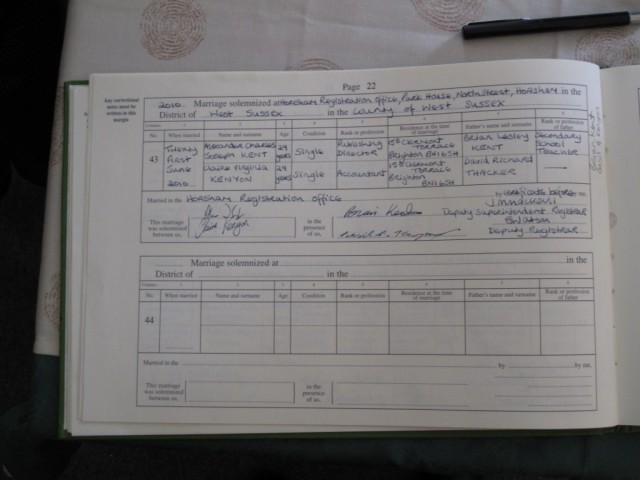 Page 22
Any corrections
must be
written in this
margin
2010. Marriage solemnized at Horsham Registration Office, Park House, North Street, Horsham in the
District of West Sussex in the County of West Sussex
No. When married Name and surname Age Condition Rank or profession Residence at the time of marriage Father's name and surname Rank or profession of father
43
Twenty First June 2010
Alexander Charles Joseph KENT 29 years Single Publishing Director Clermont Terrace Brighton BN1 6SH Brian Lesley KENT Secondary School Teacher
Claire Virginia KENYON 29 years Single Accountant Clermont Terrace Brighton BN1 6SH David Richard THACKER
Married in the Horsham Registration Office by certificate before me,
This marriage was solemnized between us,
in the presence of us,
Deputy Superintendent Registrar
Deputy Registrar
Marriage solemnized at in the
District of in the
No. When married Name and surname Age Condition Rank or profession Residence at the time of marriage Father's name and surname Rank or profession of father
44
Married in the by by me,
This marriage was solemnized between us,
in the presence of us,